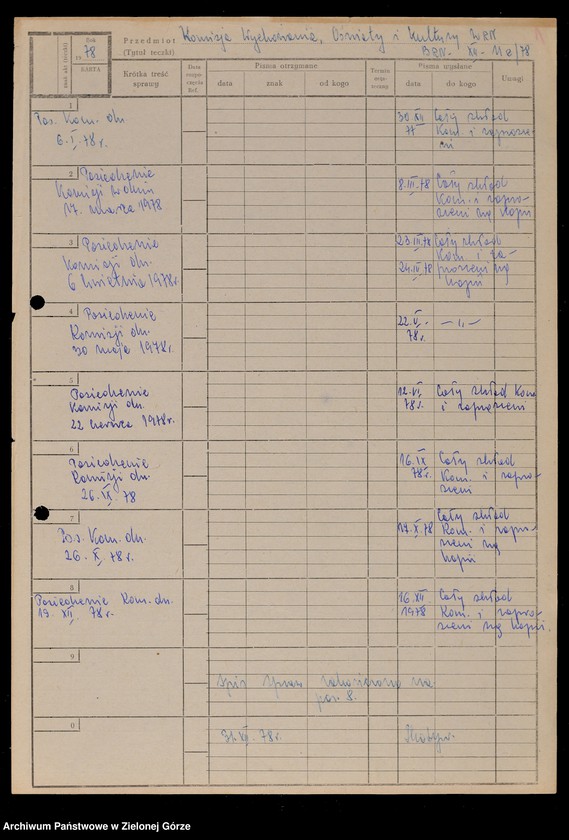 Rok
19 78
KARTA
Przedmiot
(Tytuł teczki)
Komisja Wychowania, Oświaty i Kultury WRN
BRN- XII- 11e/78
Krótka treść
sprawy
Data
rozpo-
częcia
Ref.
Pisma otrzymane
data
znak
od kogo
Termin
Pisma wysłane
data
do kogo
Uwagi
1
Pos. Kom. dn.
6.I.78r.
30 XII
77
Cały skład
Kom. i zaprosze-
ni
2
Posiedzenie
Komisji w dniu
17. marca 1978
8.III.78
Cały skład
Kom. i zapro-
szeni wg kopii
3
Posiedzenie
Komisji dn.
6 kwietnia 1978r
23 III.78
24.III.78
Cały skład
Kom i za-
proszeni wg
kopii
4
Posiedzenie
Komisji dn.
30 maja 1978r.
22.V.-
78r.
— „ —
5
Posiedzenie
Komisji dn.
22 czerwca 1978r.
12.VI.
78r.
Cały skład Kom
i zaproszeni
6
Posiedzenie
Komisji dn.
26.IX.78
16.IX
78r.
Cały skład
Kom. i zapro-
szeni
7
Pos. Kom. dn.
26.X.78r.
17.X.78
Cały skład
Kom. i zapro-
szeni wg
kopii
8
Posiedzenie Kom. dn.
19. XII 78r.
16.XII
1978
Cały skład
Kom. i zapro-
szeni wg kopii.
9
Spis spraw zakończono na
poz. 8.
0
31.XII.78r.
Archiwum Państwowe w Zielonej Górze